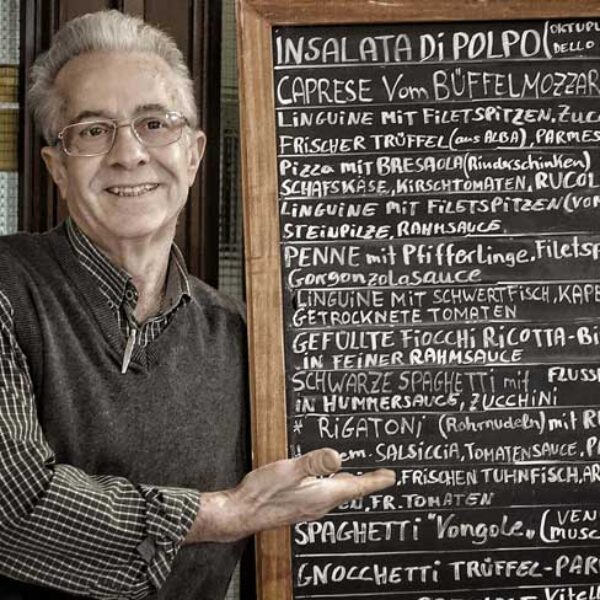 INSALATA Di POLPO (OKTUPU
DELLO
CAPRESE Vom BÜFFELMOZZAR
LINGUINE MIT FILETSPITZEN, ZUC
FRISCHER TRÜFFEL (aus ALBA), PARMES
Pizza MiT BRESAOLA (Rinderschinken)
SCHAFSKÄSE, KIRSCHTOMATEN, RUCOL
LINGUINE MIT FILETSPITZEN (VOM
STEINPILZE, RAHMSAUCE
PENNE mit Pfifferlinge, Filetsp
Gorgonzolasauce
LINGUINE MIT SCHWERTFISCH, KAPE
GETROCKNETE TOMATEN
GEFÜLLTE FIOCCHI RICOTTA-Bi
IN FEINER RAHMSAUCE
SCHWARZE SPAGHETTI mit FLUSS
IN HUMMERSAUCE, ZUCCHINI
* RIGATONI (Rohrnudeln) mit RU
em. SALSICCIA, TOMATENSAUCE, PA
, FRISCHEN TUHNFISCH, AR
EN, FR. TOMATEN
SPAGHETTI "Vongole" (VEN
MUSC
GNOCCHETTI TRÜFFEL-PAR
Vitell